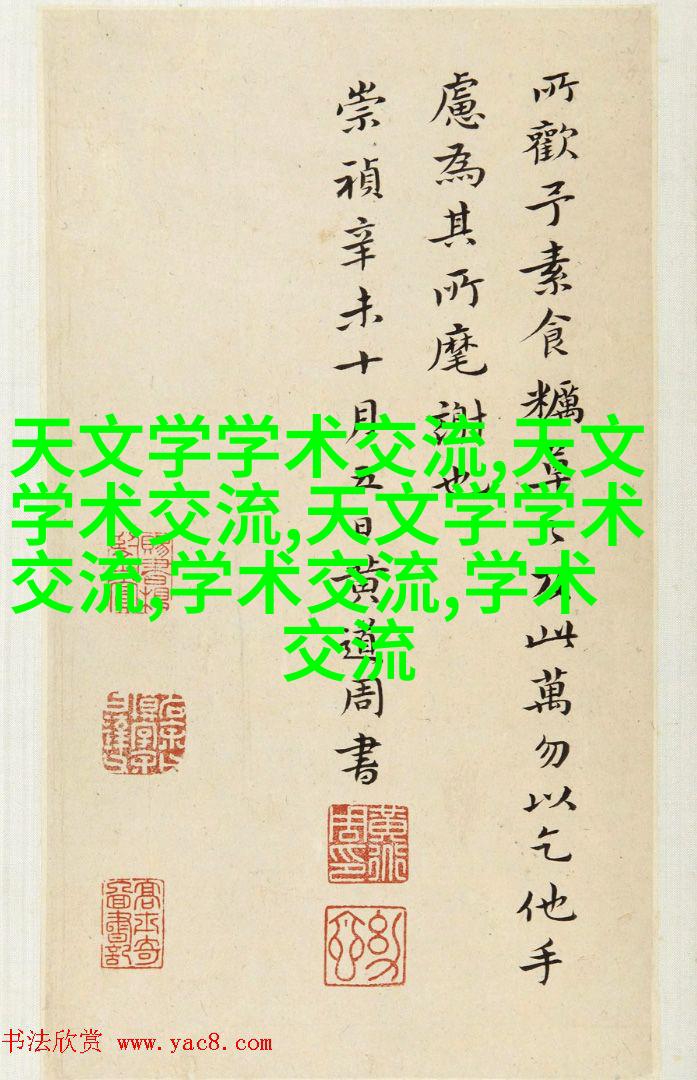 所歡予素食糲
此萬勿以乞他手
慮為其所麾謝也
崇禎辛未十月五日黃道周書
天文学学术交流,天文
学术交流,天文学学术
交流,学术交流,学术
交流
黃道周印
高士奇圖書記
书法欣赏 www.yac8.com